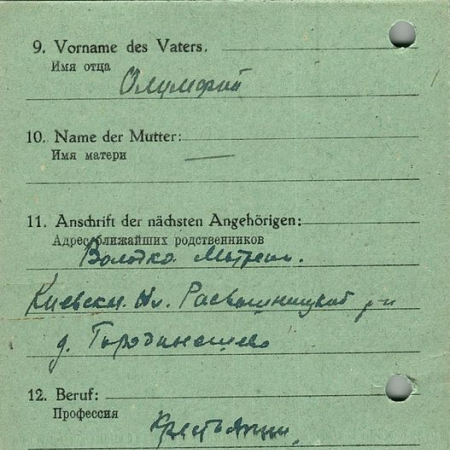 9. Vorname des Vaters.
Имя отца
10. Name der Mutter:
Имя матери
11. Anschrift der nächsten Angehörigen:
Адрес ближайших родственников
Володко
Киевск.
д.
12. Beruf:
Профессия
Крестьянин